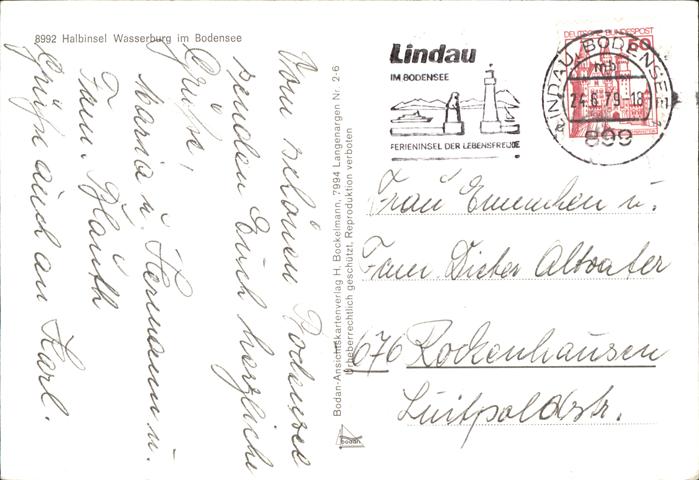 8992 Halbinsel Wasserburg im Bodensee
Vom schönen Bodensee
senden Euch herzliche
Grüße,
Maria u. Hermann u.
Fam.
Grüße auch an Karl.
Bodan-Ansichtskartenverlag H. Bockelmann, 7994 Langenargen Nr. 2-6
Urheberrechtlich geschützt, Reproduktion verboten
bodan
Lindau
IM BODENSEE
FERIENINSEL DER LEBENSFREUDE
DEUTSCHE BUNDESPOST
60
LINDAU, BODENSEE 1
mb
24.8.79-18
899
Frau Emmchen u.
Fam. Dieter Altvater
676 Rockenhausen
Luitpoldstr.